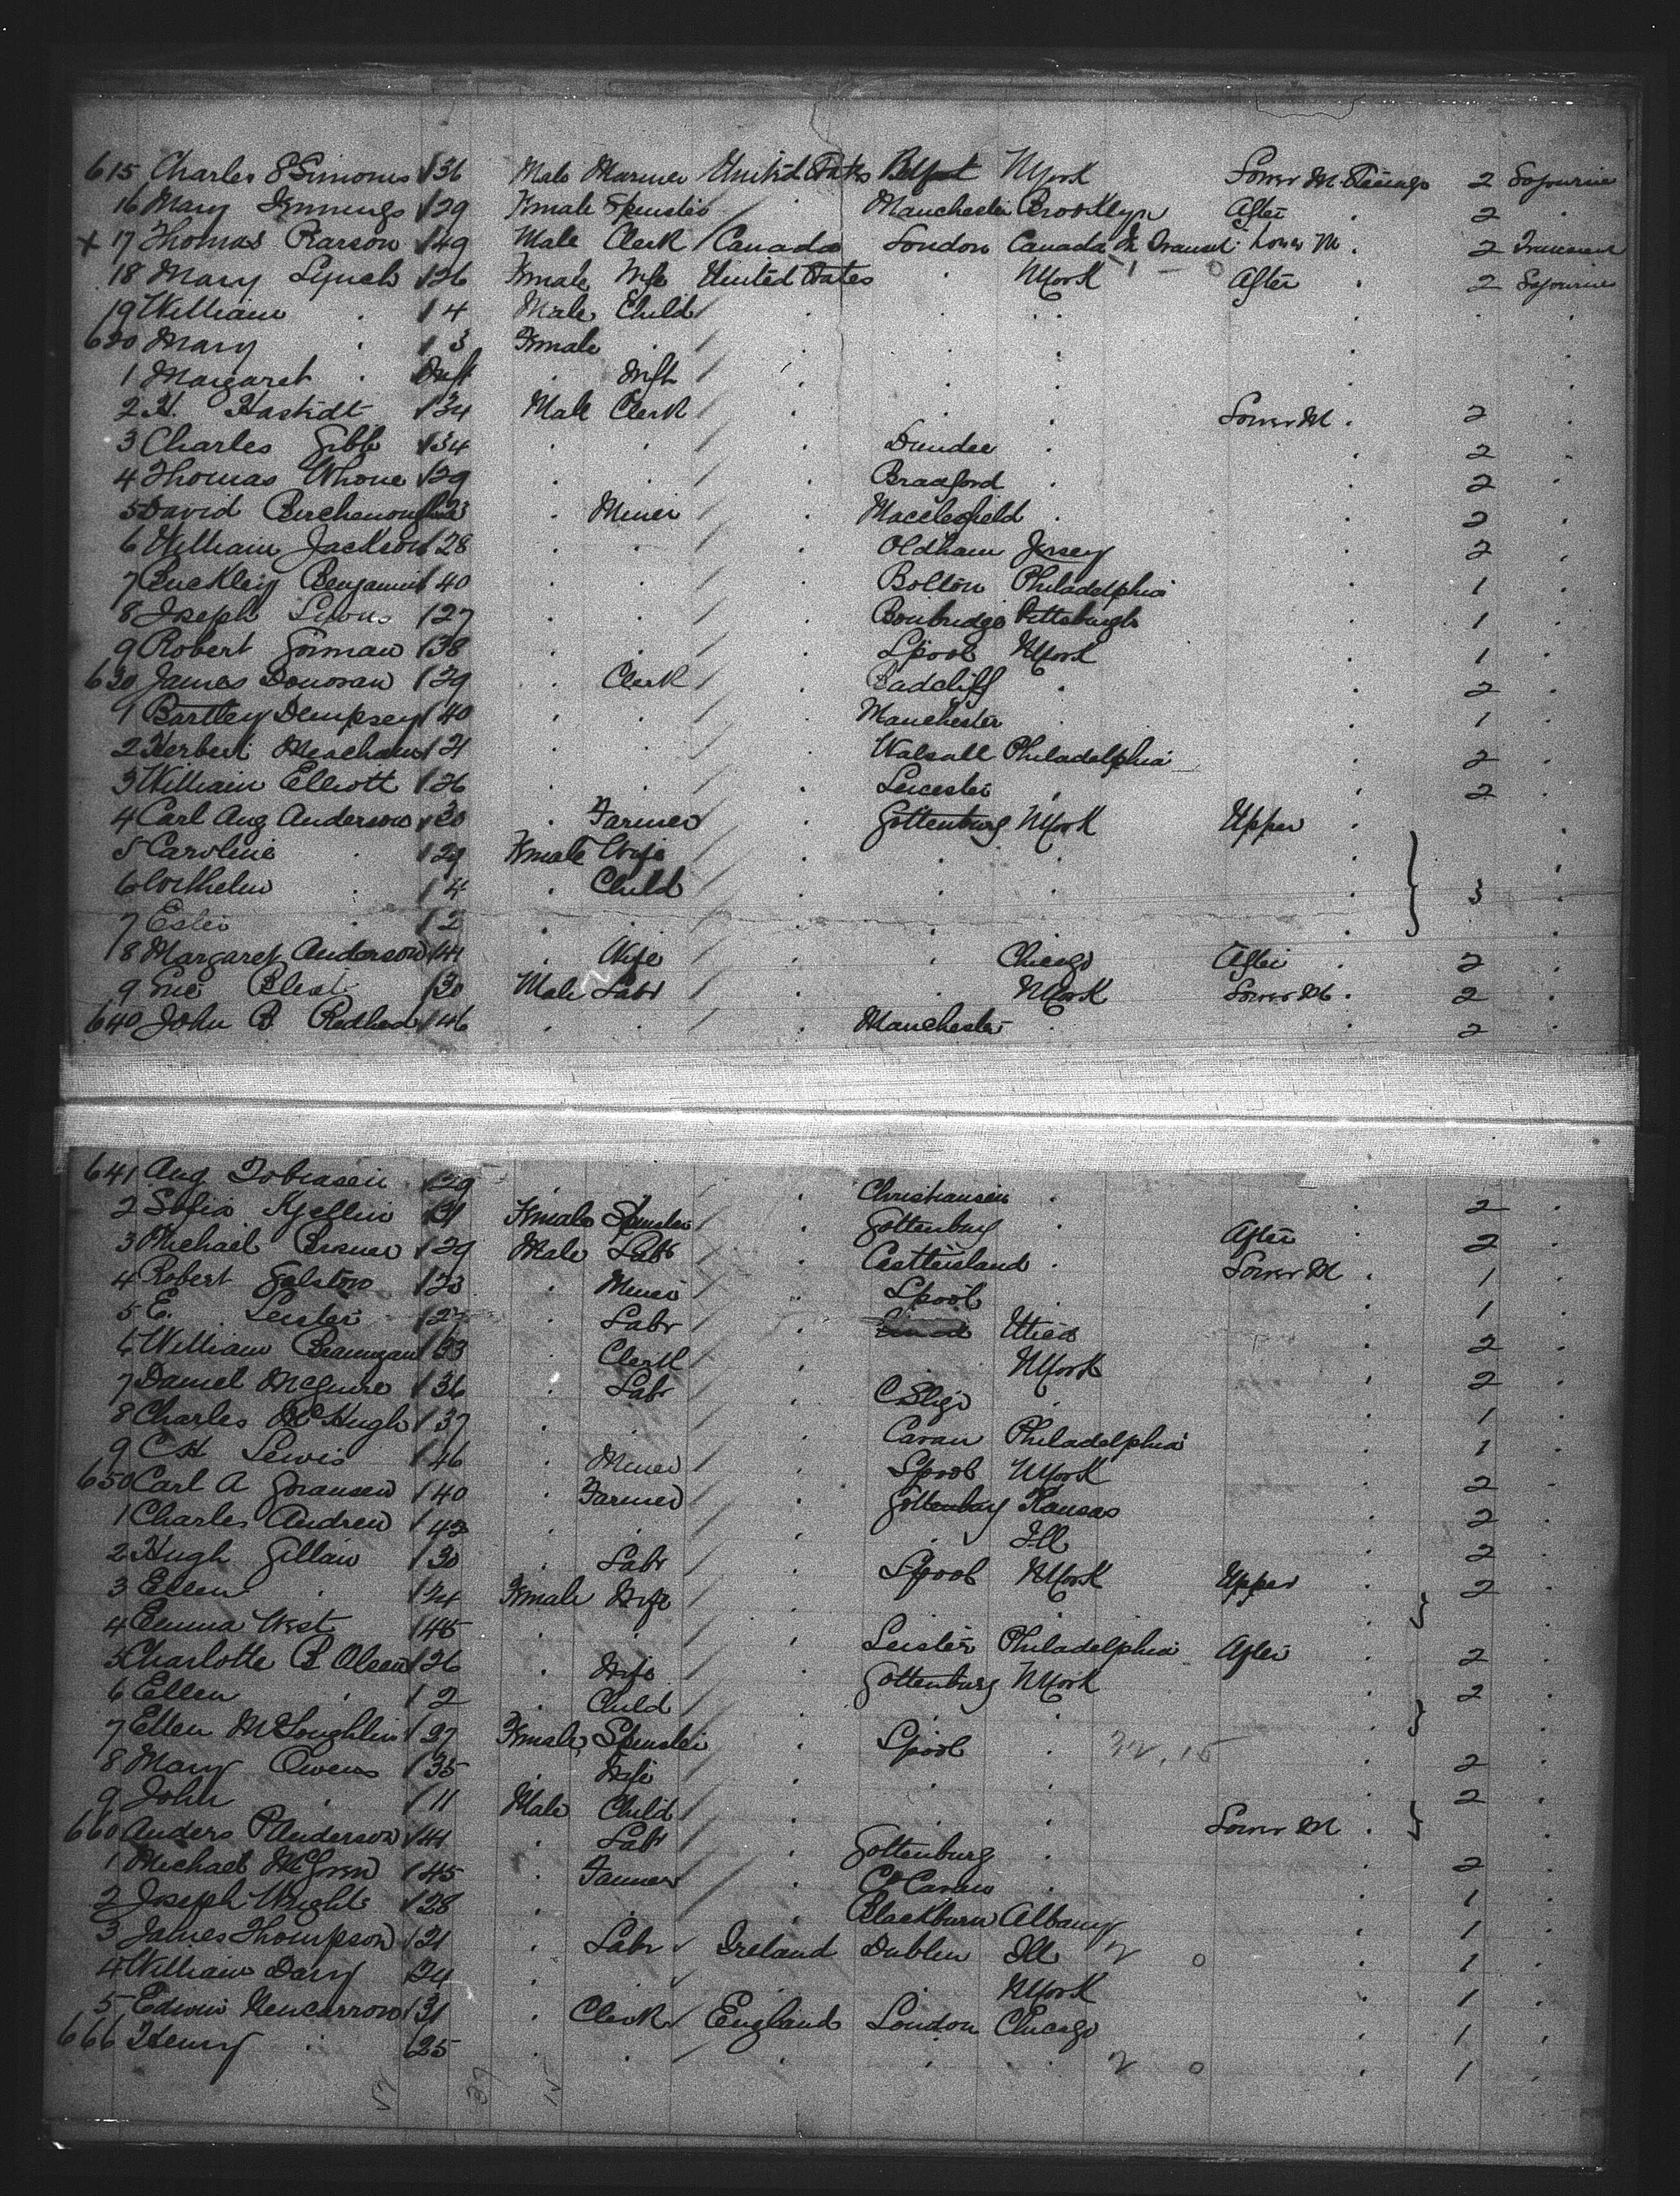 615 Charles S Simons 36 Male Mariner United States Belfast N York Lower M Steerage 2 Sojourner
16 Mary Jennings 29 Female Spinster Manchester Brooklyn After 2
x 17 Thomas Parson 49 Male Clerk Canada London Canada In Transit Lower M 2 Transient
18 Mary Lynch 26 Female Wife United States N York After 2 Sojourner
19 William 4 Male Child
620 Mary 3 Female
1 Margaret Inft Inft
2 H. Hastedt 34 Male Clerk Lower M 2
3 Charles Gibb 34 Dundee 2
4 Thomas Whone 29 Bradford 2
5 David Birchenough 23 Miner Macclesfield 2
6 William Jackson 28 Oldham Jersey 2
7 Buckley Benjamin 40 Bolton Philadelphia 1
8 Joseph 27 Pittsburgh 1
9 Robert Gorman 38 Lpool N York 1
630 James Donovan 29 Clerk Radcliff 2
1 Bartley Dempsey 40 Manchester 1
2 Herbert Meacham 21 Walsall Philadelphia 2
3 William Elliott 26 Leicester 2
4 Carl Aug Anderson 30 Farmer Gottenburg N York Upper
5 Caroline 29 Female Wife
6 Wilhelm 4 Child 3
7 Ester 2
8 Margaret Anderson 44 Wife Chicago After 2
9 Eric 30 Male Labr N York Lower M 2
640 John B Redhead 46 Manchester 2
641 Aug Tobiasen 29 Christiansen 2
2 Sofia Kjellin 31 Female Spinster Gottenburg After 2
3 Michael Brosner 29 Male Labr Castleisland Lower M 1
4 Robert Galston 23 Miner Lpool 1
5 E. Leister 27 Labr Utica 2
6 William Branigan 33 Clerk N York 2
7 Daniel McGuire 36 Labr C Sligo 1
8 Charles McHugh 37 Cavan Philadelphia 1
9 C H Lewis 46 Miner Lpool N York 2
650 Carl A Goransen 40 Farmer Gottenburg Kansas 2
1 Charles Andrew 42 Ill 2
2 Hugh Gillan 30 Labr Lpool N York Upper 2
3 Ellen 24 Female Wife
4 Emma West 45 Leister Philadelphia After 2
5 Charlotte B Olsen 26 Wife Gottenburg N York 2
6 Ellen 2 Child
7 Ellen McLoughlin 27 Female Spinster Lpool 2
8 Mary Owens 35 Wife 2
9 John 11 Male Child Lower M
660 Anders P Anderson 44 Labr Gottenburg 2
1 Michael McGovern 45 Farmer Co Cavan 1
2 Joseph Wright 28 Blackburn Albany 1
3 James Thompson 21 Labr Ireland Dublin Ill 2 0 1
4 William Dary 24 N York 1
5 Edwin Nancarrow 31 Clerk England London Chicago 1
666 Henry 25 2 0 1